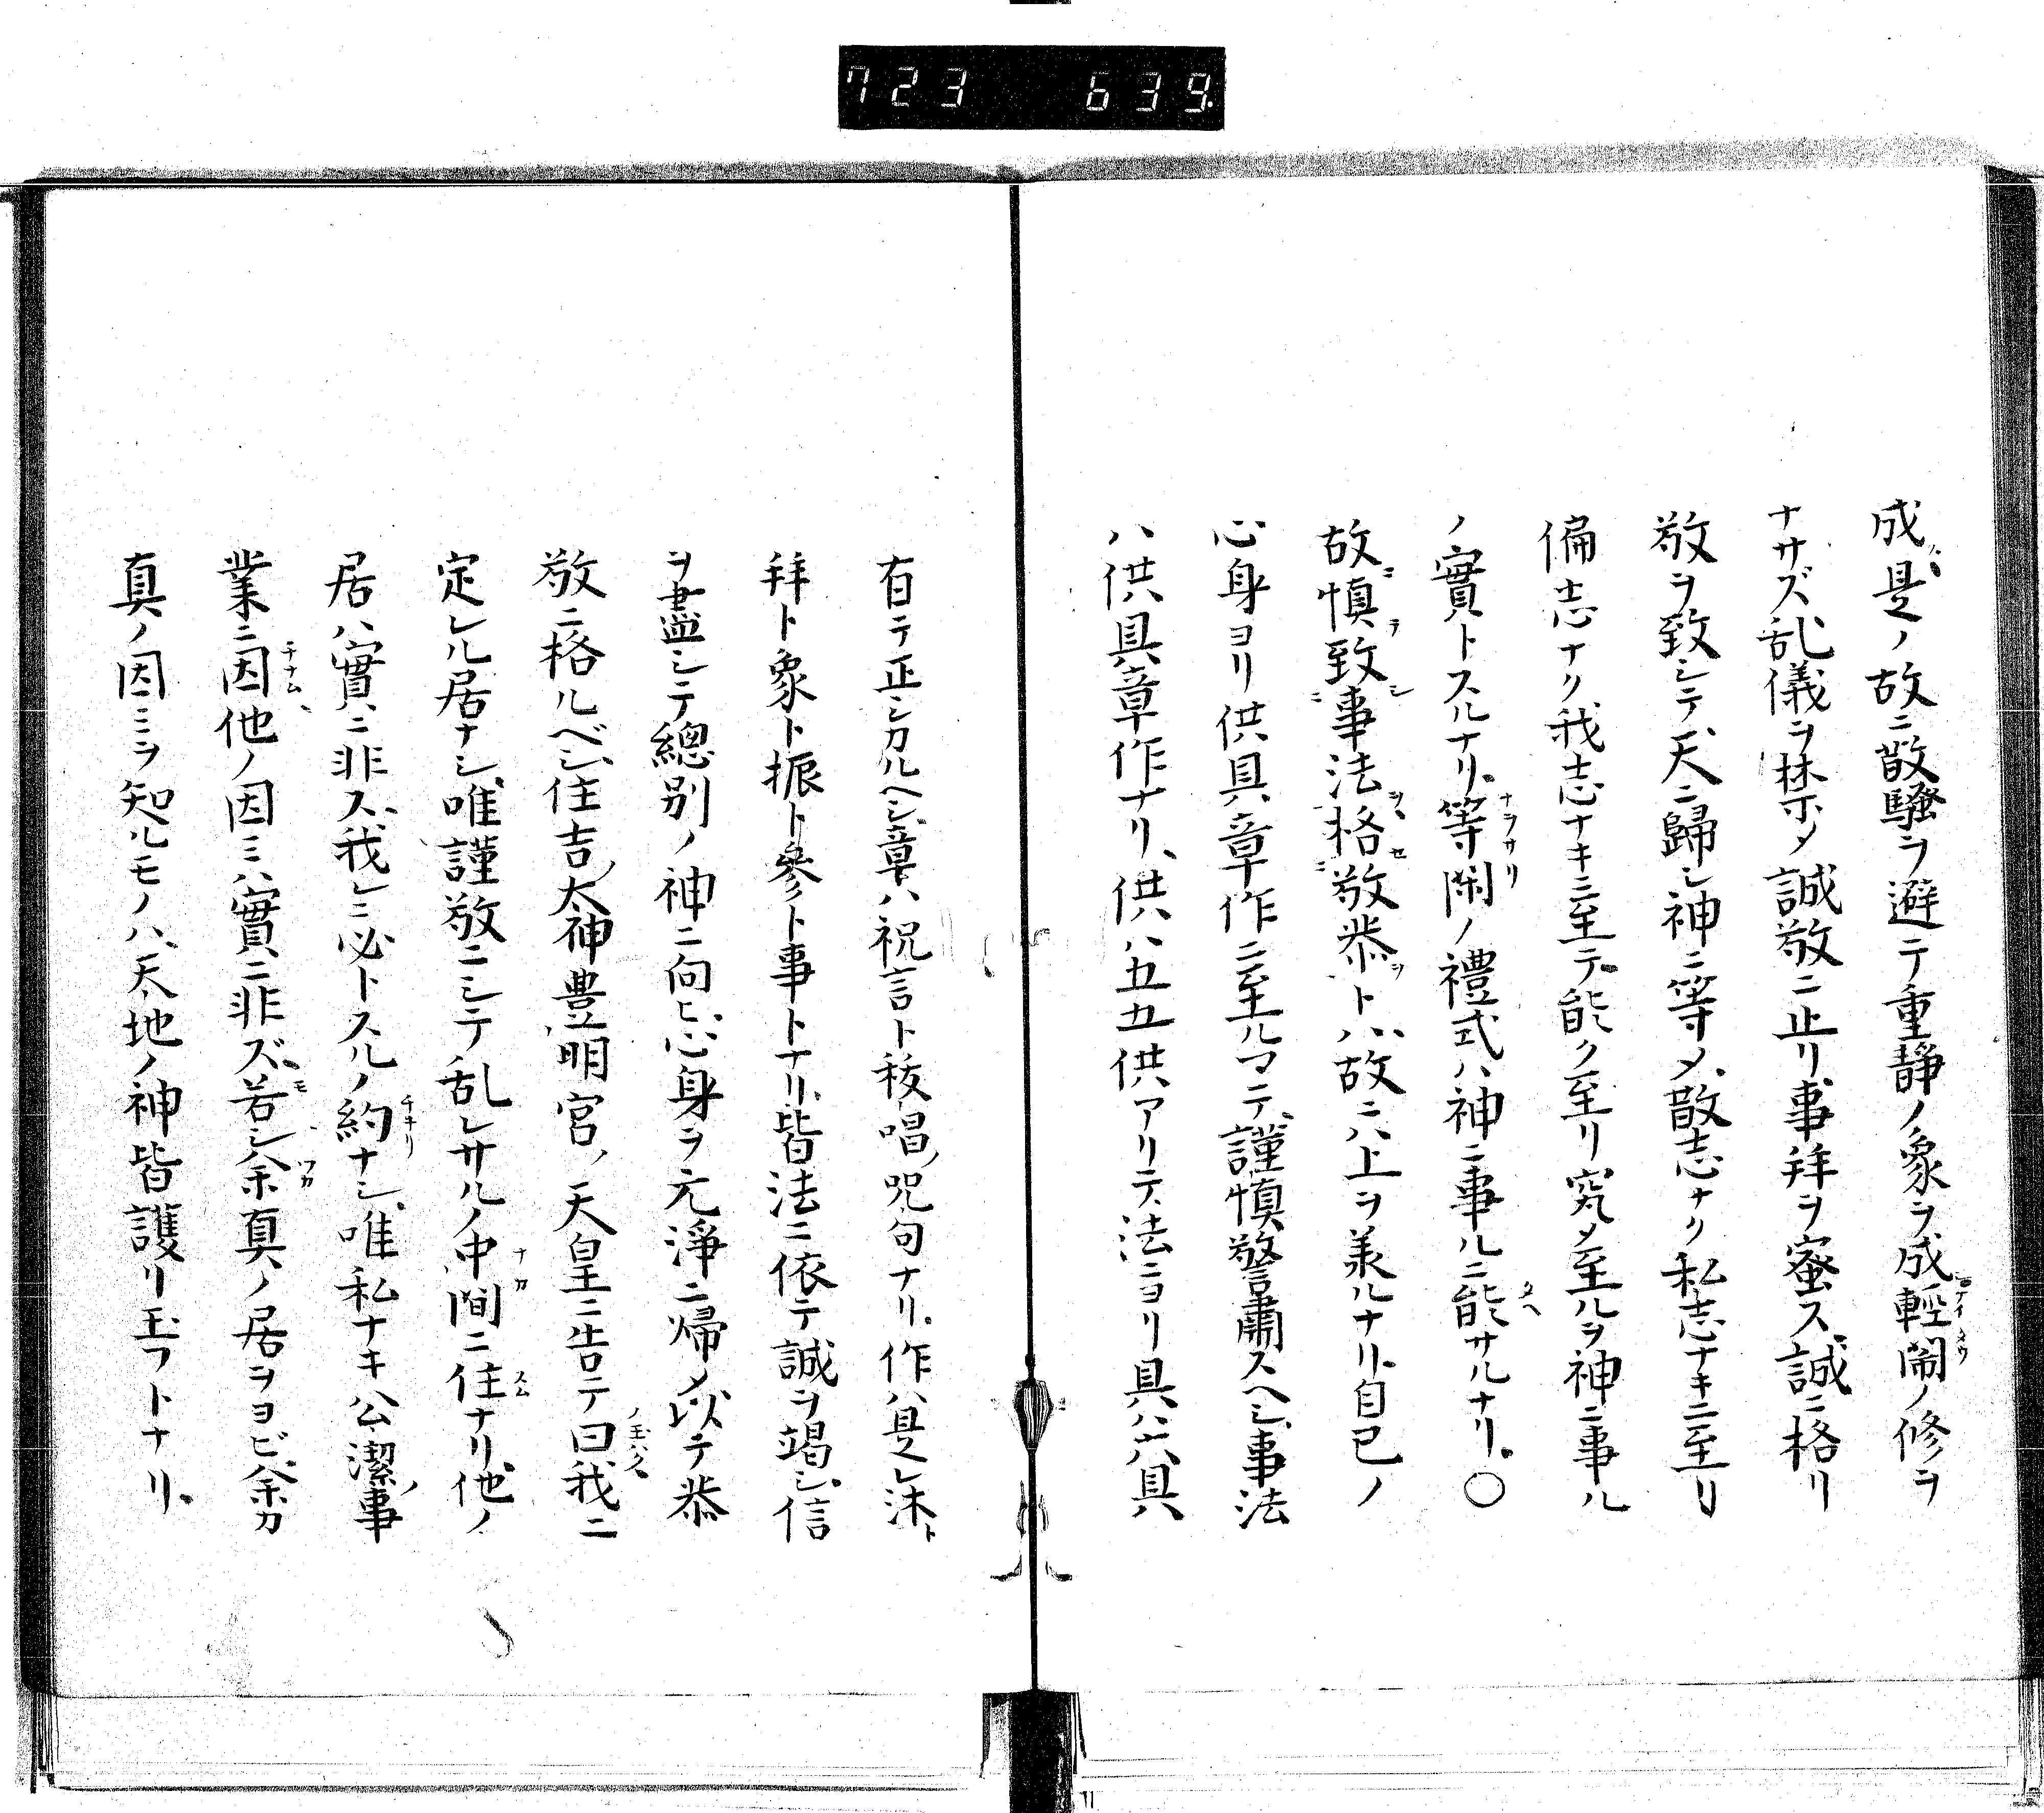 723 639
成是ノ故ニ散騷ヲ避テ重靜ノ象ヲ成輕鬧ノ修ヲ
ナサズ乱儀ヲ禁メ誠敬ニ止リ事拜ヲ蜜ス誠ニ格リ
敬ヲ致シテ天ニ歸シ神ニ等メ散志ナク私志ナキニ至リ
偏志ナク我志ナキニ至テ能ク至リ究メ至ルヲ神ニ事ル
ノ實トスルナリ等閑ノ禮式ハ神ニ事ルニ能サルナリ○
故慎致事法格敬恭トハ故ニハ上ヲ美ルナリ自已ノ
心身ヨリ供具章作ニ至ルマテ謹慎警肅スヘシ事法
ハ供具章作ナリ供ハ五五供アリテ法ニヨリ具ハ六具
有テ正シカルヘシ章ハ祝言ト秡唱咒句ナリ作ハ是レ沐ト
拜ト象ト振ト參ト事トナリ皆法ニ依テ誠ヲ竭シ信
ヲ盡シテ總別ノ神ニ向ヒ心身ヲ元淨ニ帰メ以テ恭
敬ニ格ルベシ住吉太神豊明宮ノ天皇ニ告テ曰我ニ
定レル居ナシ唯謹敬ニシテ乱レサルノ中間ニ住ナリ他ノ
居ハ實ニ非ス我レニ必トスルノ約ナシ唯私ナキ公潔事
業ニ因他ノ因ミハ實ニ非ズ若シ余真ノ居ヲヨビ余カ
真ノ因ミヲ知ルモノハ天地ノ神皆護リ玉フトナリ